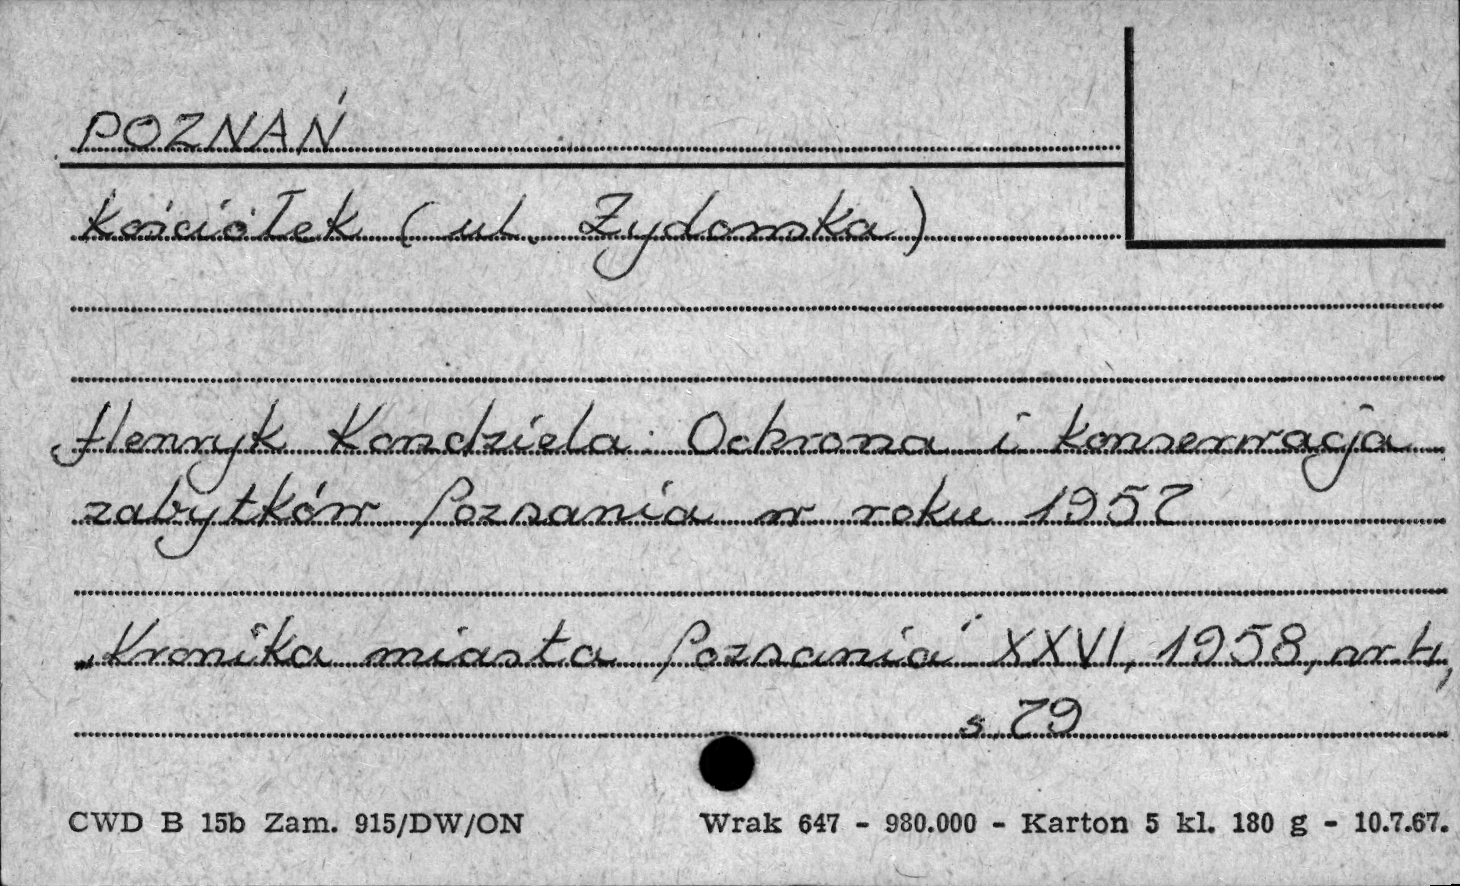 POZNAŃ
Kościółek (ul. Żydowska)
Henryk Kondziela. Ochrona i konserwacja
zabytków Poznania w roku 1957
„Kronika miasta Poznania" XXVI, 1958, nr 4,
s. 79
CWD B 15b Zam. 915/DW/ON Wrak 647 - 980.000 - Karton 5 kl. 180 g - 10.7.67.